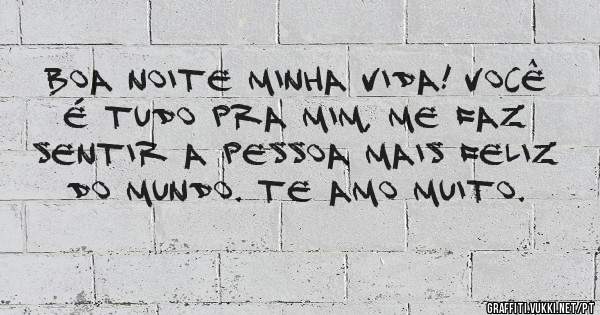 BOA NOITE MINHA VIDA! VOCÊ
É TUDO PRA MIM, ME FAZ
SENTIR A PESSOA MAIS FELIZ
DO MUNDO. TE AMO MUITO.
GRAFFITI.VUKKI.NET/PT